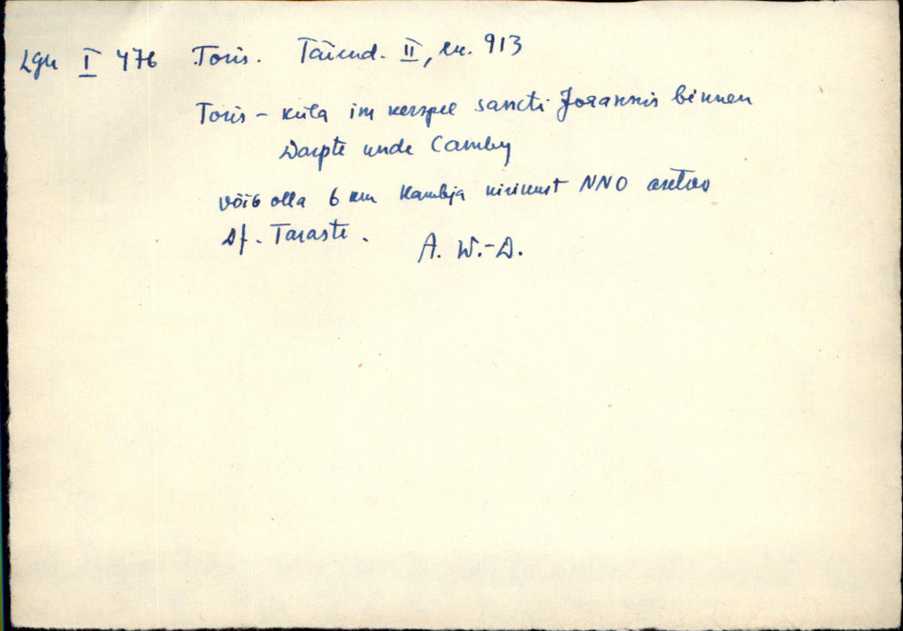 Lgu I 476 Toris. Täiend. II, lk. 913
Toris – küla im kerspel sancti Johannis binnen
Darpte unde Camby
võib olla 6 km Kambja kirikust NNO asetsev
df. Taraste.
A. W.-D.